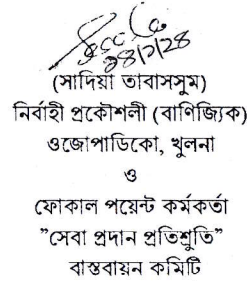 ২৪/১/২৪
(সাদিয়া তাবাসসুম)
নির্বাহী প্রকৌশলী (বাণিজ্যিক)
ওজোপাডিকো, খুলনা
ও
ফোকাল পয়েন্ট কর্মকর্তা
”সেবা প্রদান প্রতিশ্রুতি”
বাস্তবায়ন কমিটি